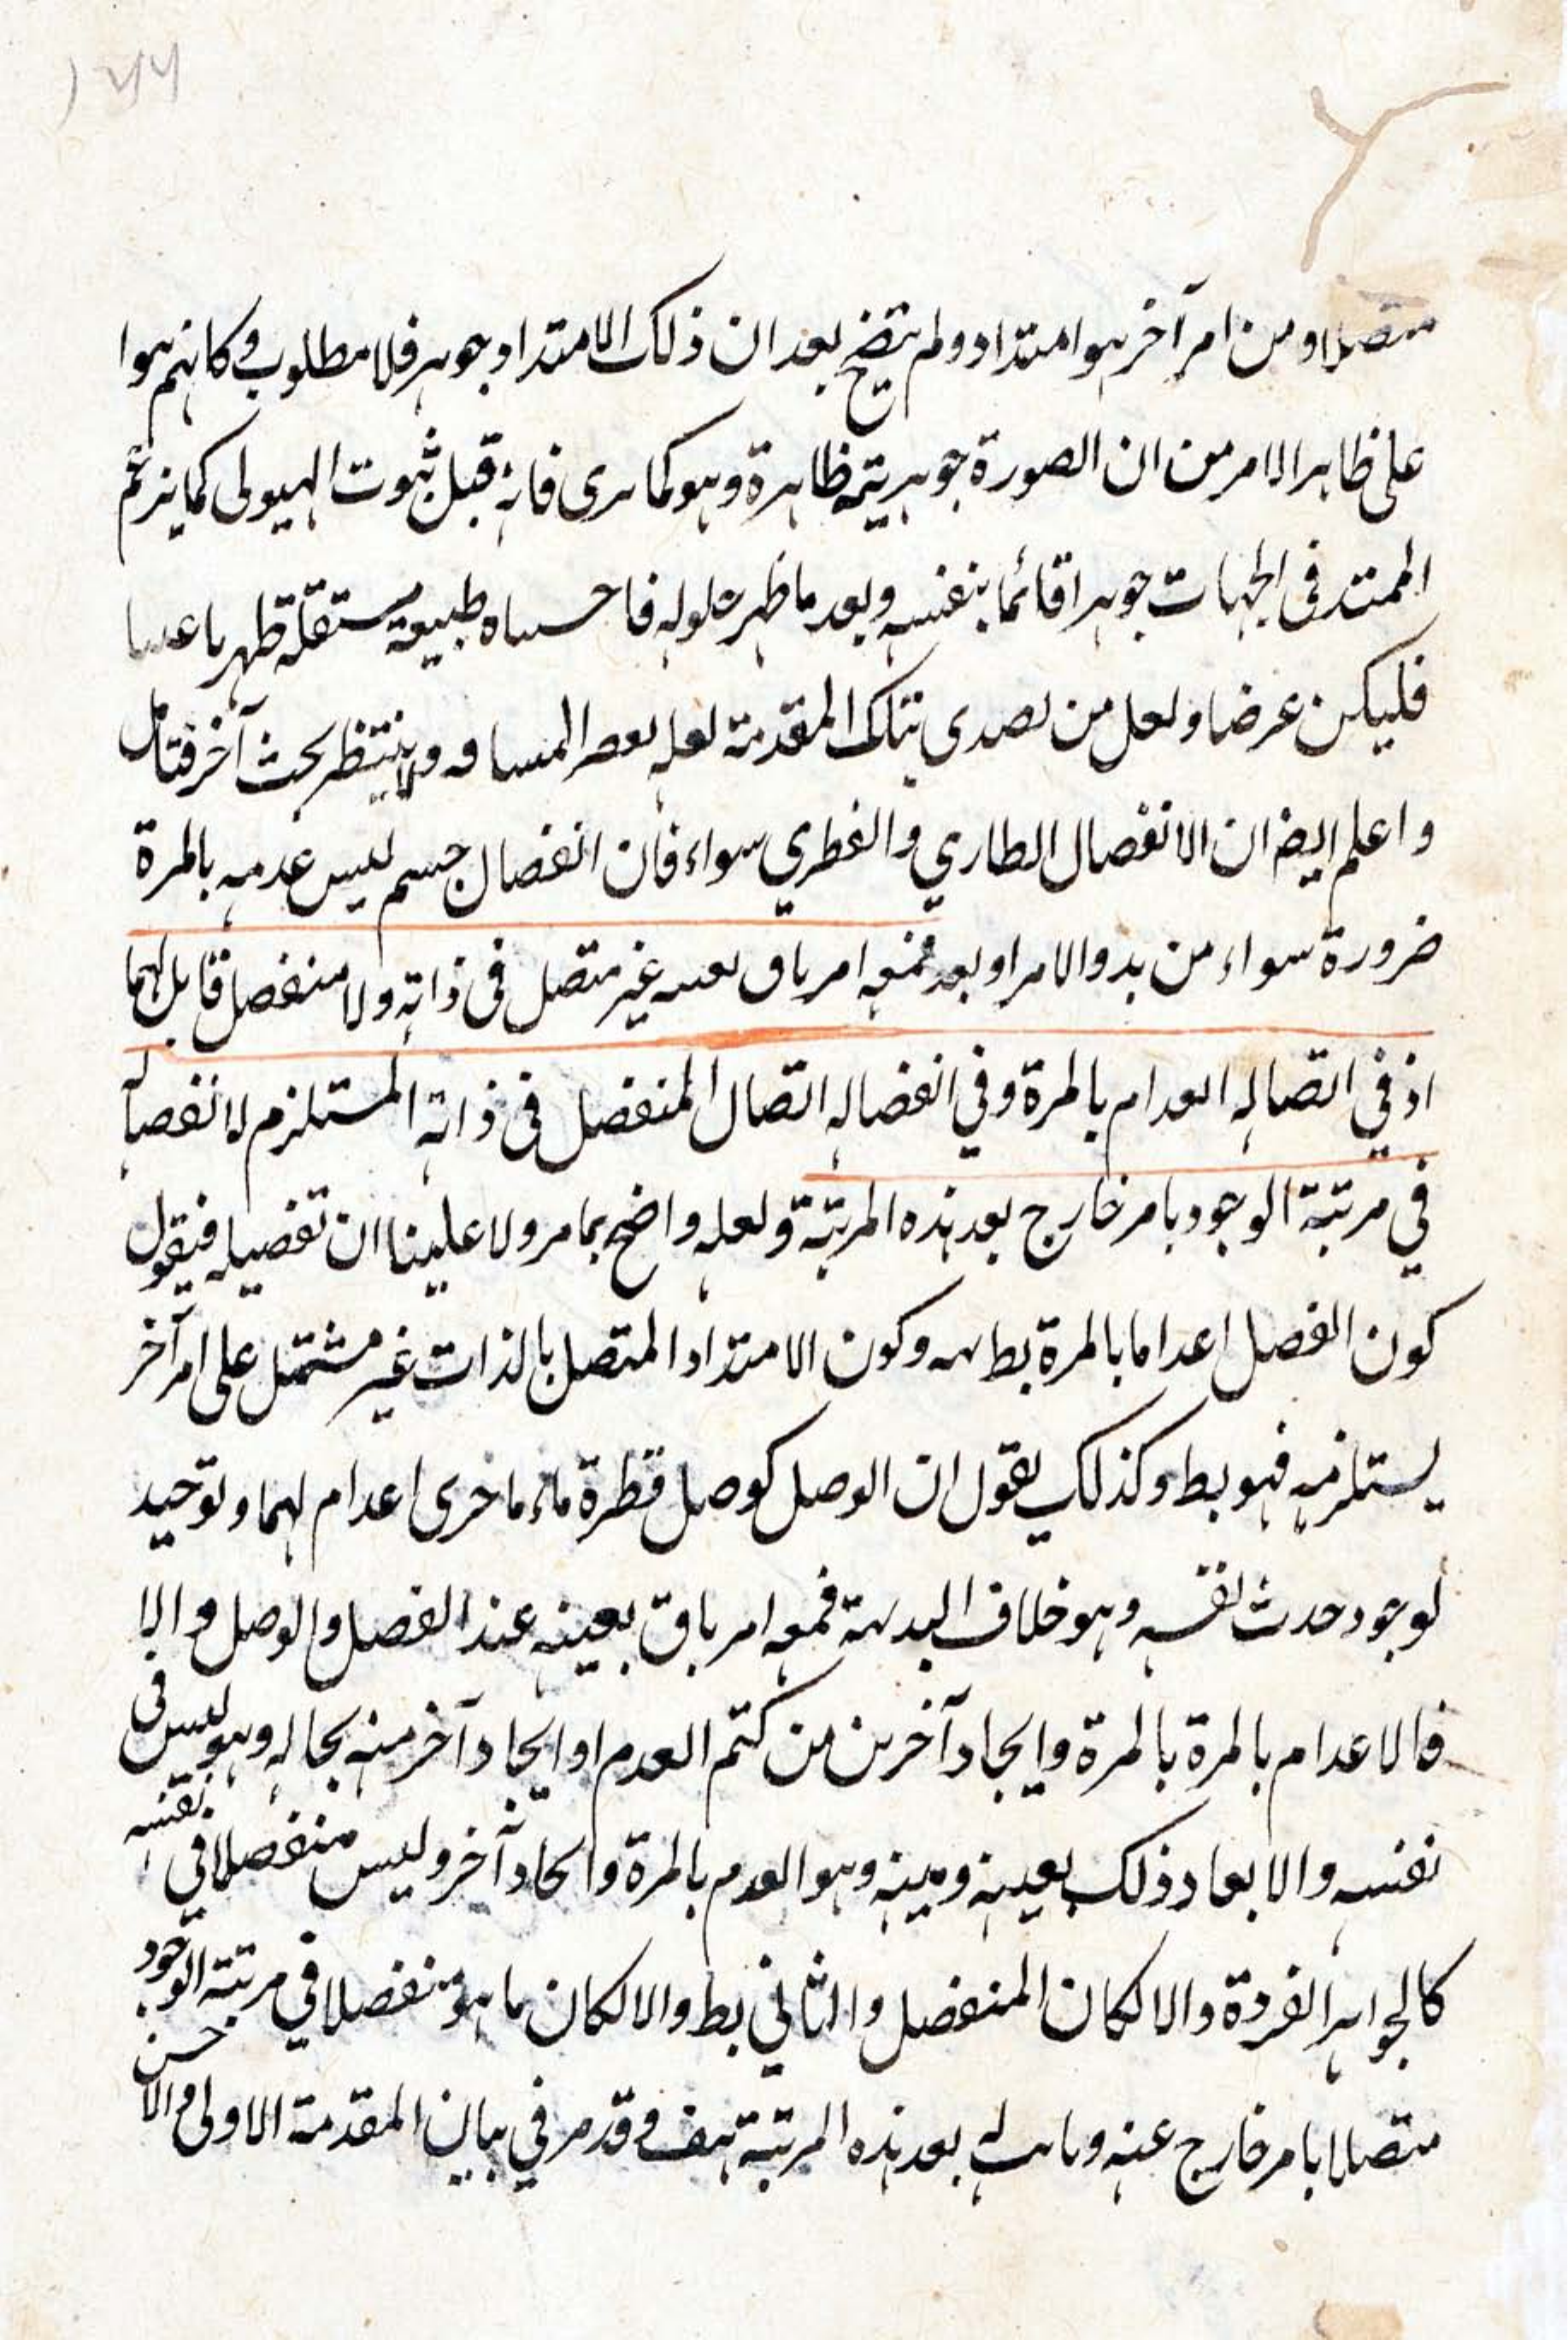 متصلا ومن امر آخر هو امتداد ولم يتضح بعد ان ذلك الامتداد جوهر فلا مطلوب وكانهم هوا
على ظاهر الامر من ان الصورة جوهريته ظاهرة وهو كما يرى فانه قبل ثبوت الهيولى كما يزعم
الممتد فى الجهات جوهرا قائما بنفسه وبعد ما ظهر حلوله طبيعة مستقلة ظهر
فليكن عرضا ولعل من تصدى بتلك المقدمة لعله ولا ينتظر بحث آخر فتامل
واعلم ايضا ان الانفصال الطاري والفطري سواء فان انفصال جسم ليس عدمه بالمرة
ضرورة سواء من بدو الامر او بعد فمعه امر باق بعينه غير متصل فى ذاته ولا منفصل قابل لهما
اذ في اتصاله انعدام بالمرة وفي انفصاله اتصال المنفصل فى ذاته المستلزم لانفصاله
في مرتبة الوجود بامر خارج بعد هذه المرتبة ولعله واضح بما مر ولا علينا ان تفصيله فيقول
كون الفصل اعداما بالمرة بط وكون الامتداد المتصل بالذات غير مشتمل على امر آخر
يستلزمه فهو بط وكذلك يقول ان الوصل كوصل قطرة ماء باخرى اعدام لهما وتوحيد
لوجود حدث نفسه وهو خلاف البديهة فمعه امر باق بعينه عند الفصل والوصل والا
فالاعدام بالمرة بالمرة وايجاد آخرين من كتم العدم او ايجاد آخر منه بحاله وهو ليس فى
نفسه والابعاد ذلك بعينه وهو العدم بالمرة وايجاد آخر وليس منفصلا في نفسه
كالجواهر الفردة والا لكان المنفصل والثاني بط والا لكان ما هو منفصلا في مرتبة الوجود
متصلا بامر خارج عنه بعد هذه المرتبة هف وقد مر في بيان المقدمة الاولى والاحسن